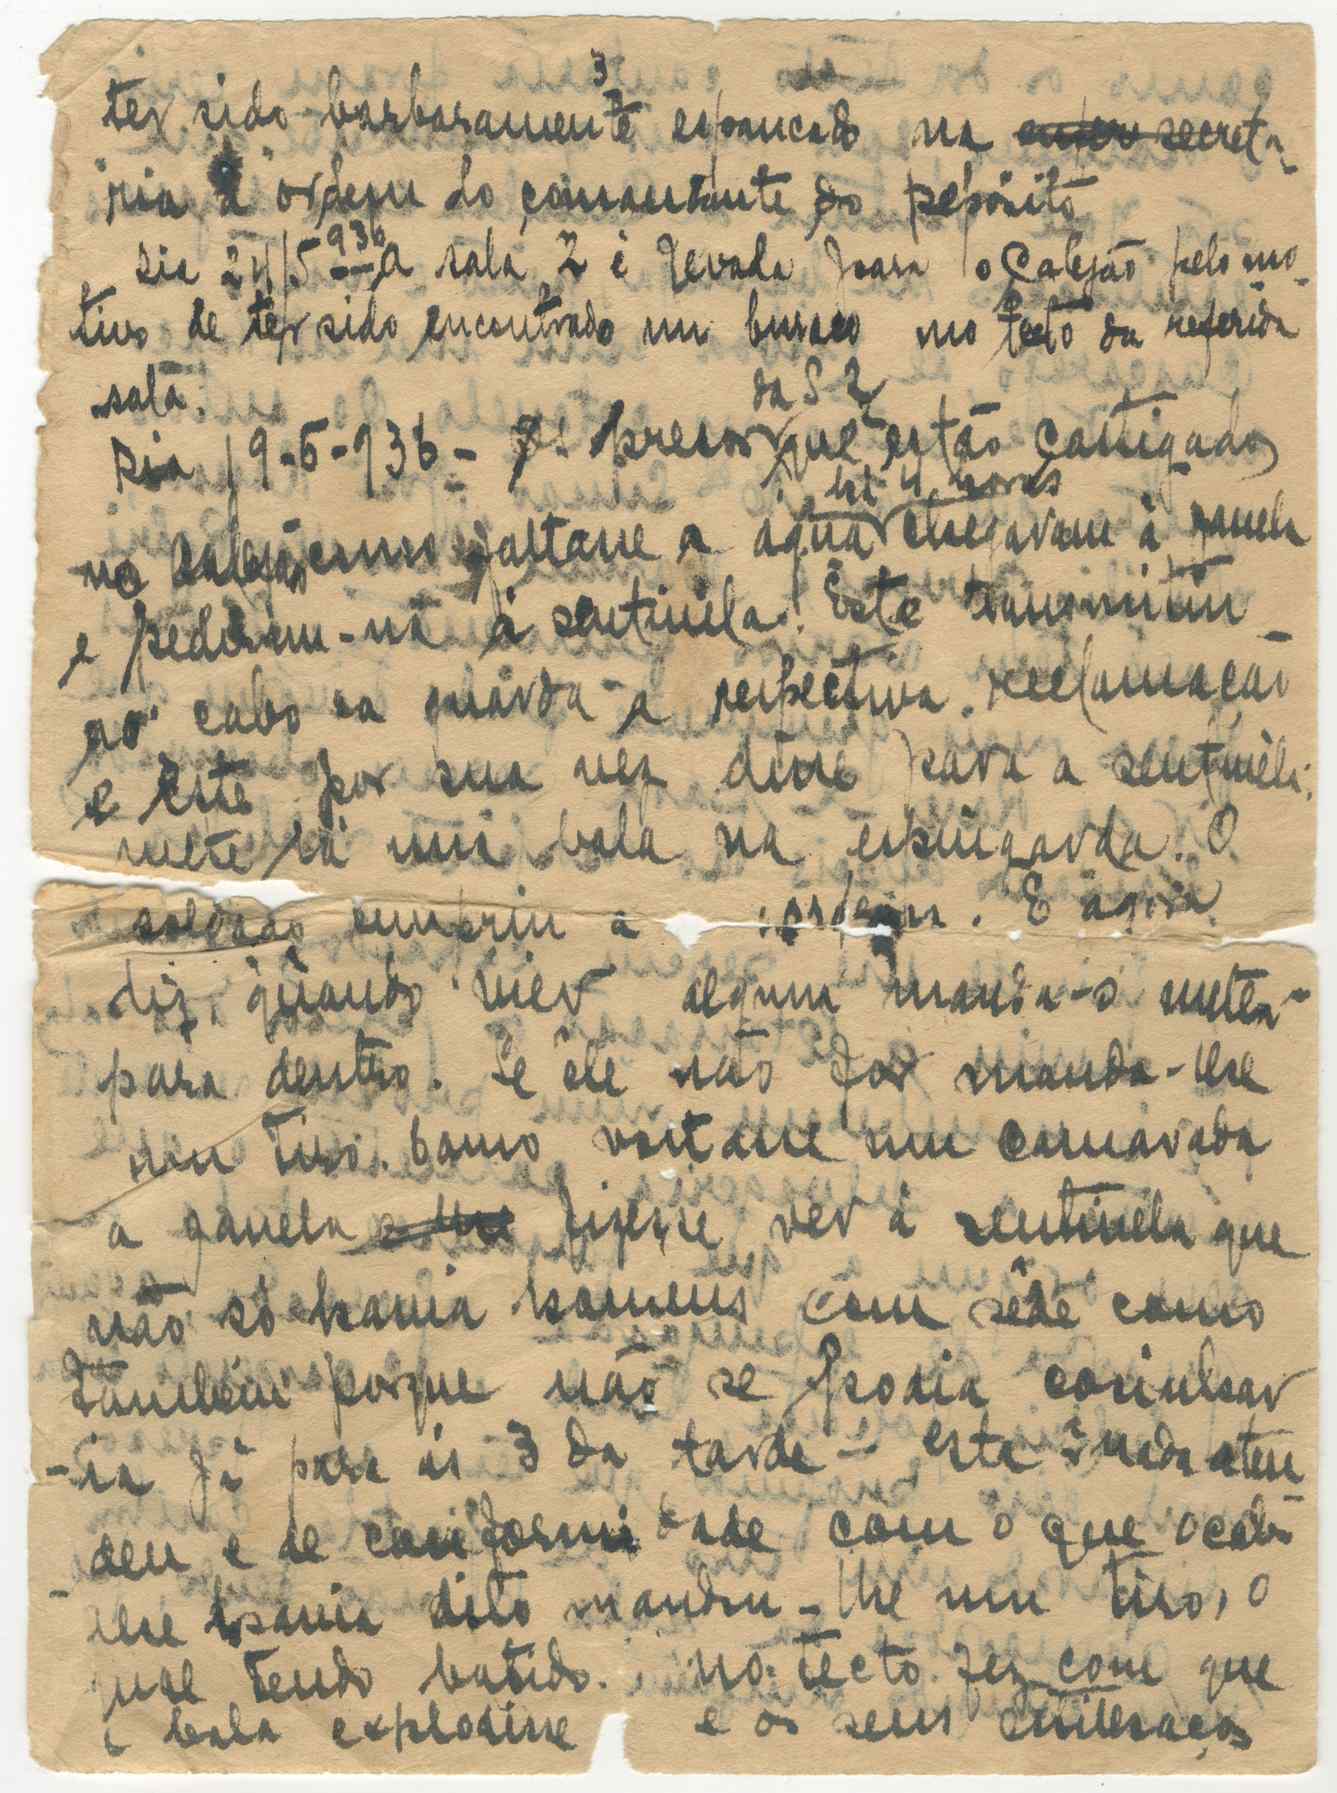 3
ter sido barbaramente espancado na secreta
ria à ordem do comandante do depósito
Dia 24/5-936-A sala 2 é levada para o Calejão pelo mo-
tivo de ter sido encontrado um buraco no tecto da referida
sala.
Dia 19-6-936- Os presos da S 2 que estão castigados
no Calejão como faltasse a água há 4 horas chegaram à janela
e pediram-na à sentinela. Este transmitiu
ao cabo da guarda a respectiva reclamação
e este por sua vez disse para a sentinela:
mete lá uma bala na espingarda. O
soldado cumpriu a ordem. E agora
diz, quando vier algum manda-o meter-
para dentro. Se êle não for manda-lhe
um tiro. Como voltasse um camarada
a janela fizesse ver à sentinela que
não só havia homens com sêde como
também porque não se podia cosinhar
-ia já para as 3 da tarde - esta a nada aten
deu e de conformidade com o que o cabo
-lhe havia dito mandou-lhe um tiro, o
qual tendo batido no tecto fez com que
a bala explodisse e os seus estilhaços